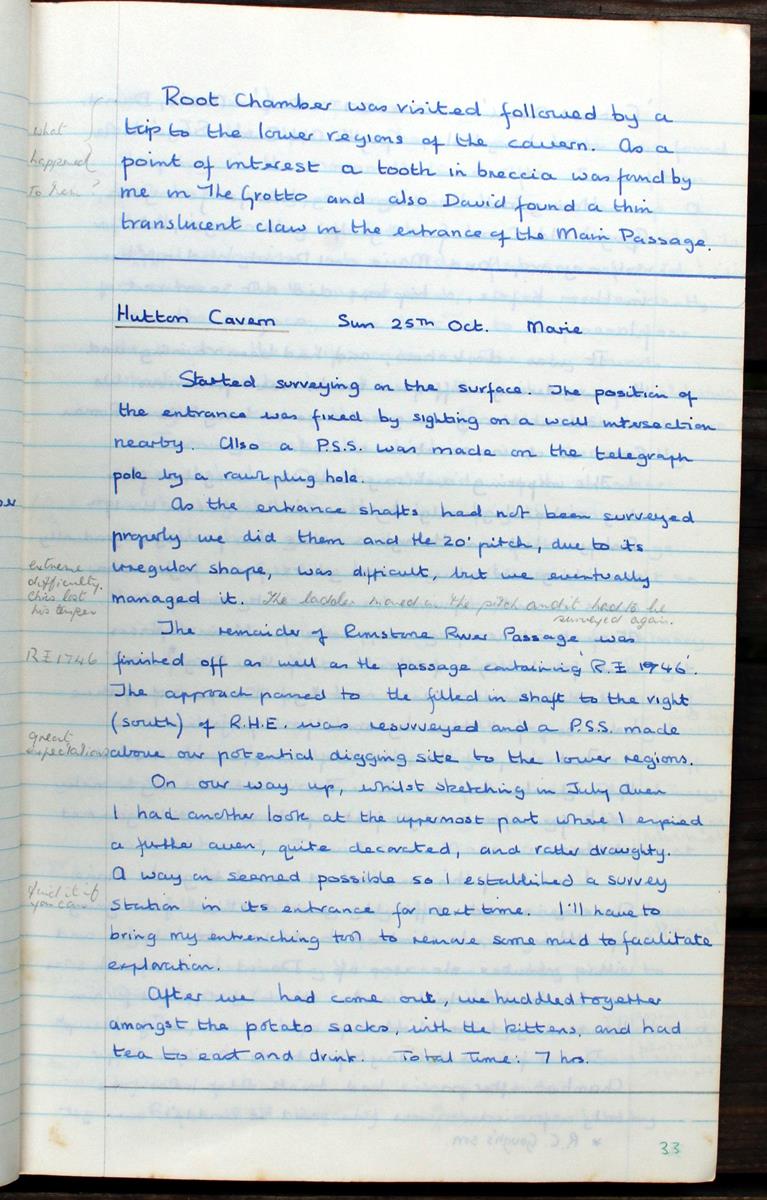 Root Chamber was visited followed by a
what
trip to the lower regions of the cavern. As a
happened
point of interest a tooth in breccia was found by
to them?
me in The Grotto and also David found a thin
translucent claw in the entrance of the Main Passage.
Hutton Cavern Sun 25TH Oct. Marie
Started surveying on the surface. The position of
the entrance was fixed by sighting on a wall intersection
nearby. Also a P.S.S. was made on the telegraph
pole by a rawlplug hole.
As the entrance shafts had not been surveyed
properly we did them and the 20' pitch, due to its
extreme
difficulty.
Chris lost
his temper
irregular shape, was difficult, but we eventually
managed it. The ladder moved in the pitch and it had to be
surveyed again.
The remainder of Rimstone River Passage was
RI 1746
finished off as well as the passage containing 'R.I 1746'.
The approach passed to the filled in shaft to the right
(south) of R.H.E. was resurveyed and a P.S.S. made
great
expectations
above our potential digging site to the lower regions.
On our way up, whilst sketching in July Aven
I had another look at the uppermost part where I espied
a further aven, quite decorated, and rather draughty.
A way on seemed possible so I established a survey
find it if
you can
station in its entrance for next time. I'll have to
bring my entrenching tool to remove some mud to facilitate
exploration.
After we had come out, we huddled together
amongst the potato sacks, with the kittens, and had
tea to eat and drink. Total Time: 7 hrs.
33